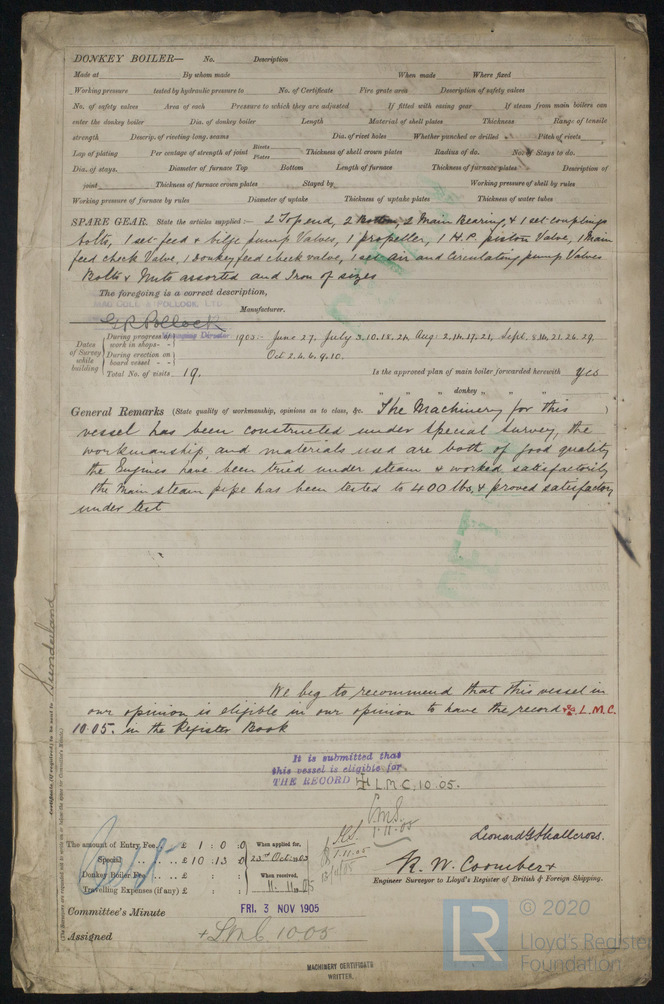 DONKEY BOILER— No. Description
Made at By whom made When made Where fixed
Working pressure tested by hydraulic pressure to No. of Certificate Fire grate area Description of safety valves
No. of safety valves Area of each Pressure to which they are adjusted If fitted with easing gear If steam from main boilers can
enter the donkey boiler Dia. of donkey boiler Length Material of shell plates Thickness Range of tensile
strength Descrip. of riveting long. seams Dia. of rivet holes Whether punched or drilled Pitch of rivets
Lap of plating Per centage of strength of joint Rivets Plates Thickness of shell crown plates Radius of do. No. of Stays to do.
Dia. of stays. Diameter of furnace Top Bottom Length of furnace Thickness of furnace plates Description of
joint Thickness of furnace crown plates Stayed by Working pressure of shell by rules
Working pressure of furnace by rules Diameter of uptake Thickness of uptake plates Thickness of water tubes
SPARE GEAR. State the articles supplied:— 2 Top end, 2 Bottom, 2 Main Bearing, & 1 set couplings
bolts, 1 set feed & bilge pump Valves, 1 propeller, 1 H.P. piston Valve, 1 Main
feed check Valve, 1 Donkey feed check valve, 1 set air and Circulating pump Valves
Bolts & Nuts assorted and Iron of sizes
The foregoing is a correct description,
MAC COLL & POLLOCK, LTD
G R Pollock Manufacturer.
Managing Director
Dates of Survey while building
During progress of work in shops - - 1905:- June 27, July 3.10.18.24 Aug: 2.14.17.21, Sept. 21.26.29.
During erection on board vessel - - Oct 2.4.6.9.10.
Total No. of visits 19. Is the approved plan of main boiler forwarded herewith yes
" " " donkey " " "
General Remarks (State quality of workmanship, opinions as to class, &c. The Machinery for this
vessel has been constructed under special survey, the
workmanship, and materials used are both of good quality
the Engines have been tried under steam & worked satisfactorily
the Main steam pipe has been tested to 400 lbs, & proved satisfactory
under test
Sunderland
We beg to recommend that this vessel in
our opinion is eligible in our opinion to have the record L.M.C.
10.05. in the Register Book
It is submitted that
this vessel is eligible for
THE RECORD L.M.C. 10.05.
1.11.05
1.11.05
Leonard G Shallcross.
The amount of Entry Fee.. £ 1 : 0 : 0 When applied for,
Special .. .. .. £ 10 : 13 : 0 23rd Oct. 1905
Donkey Boiler Fee .. .. £ : : When received,
Travelling Expenses (if any) £ : : 11.11.05
R. W. Coomber
Engineer Surveyor to Lloyd's Register of British & Foreign Shipping.
Committee's Minute FRI. 3 NOV 1905
Assigned + LMC 10 05
MACHINERY CERTIFICATE
WRITTEN.
LR © 2020
Lloyd's Register
Foundation